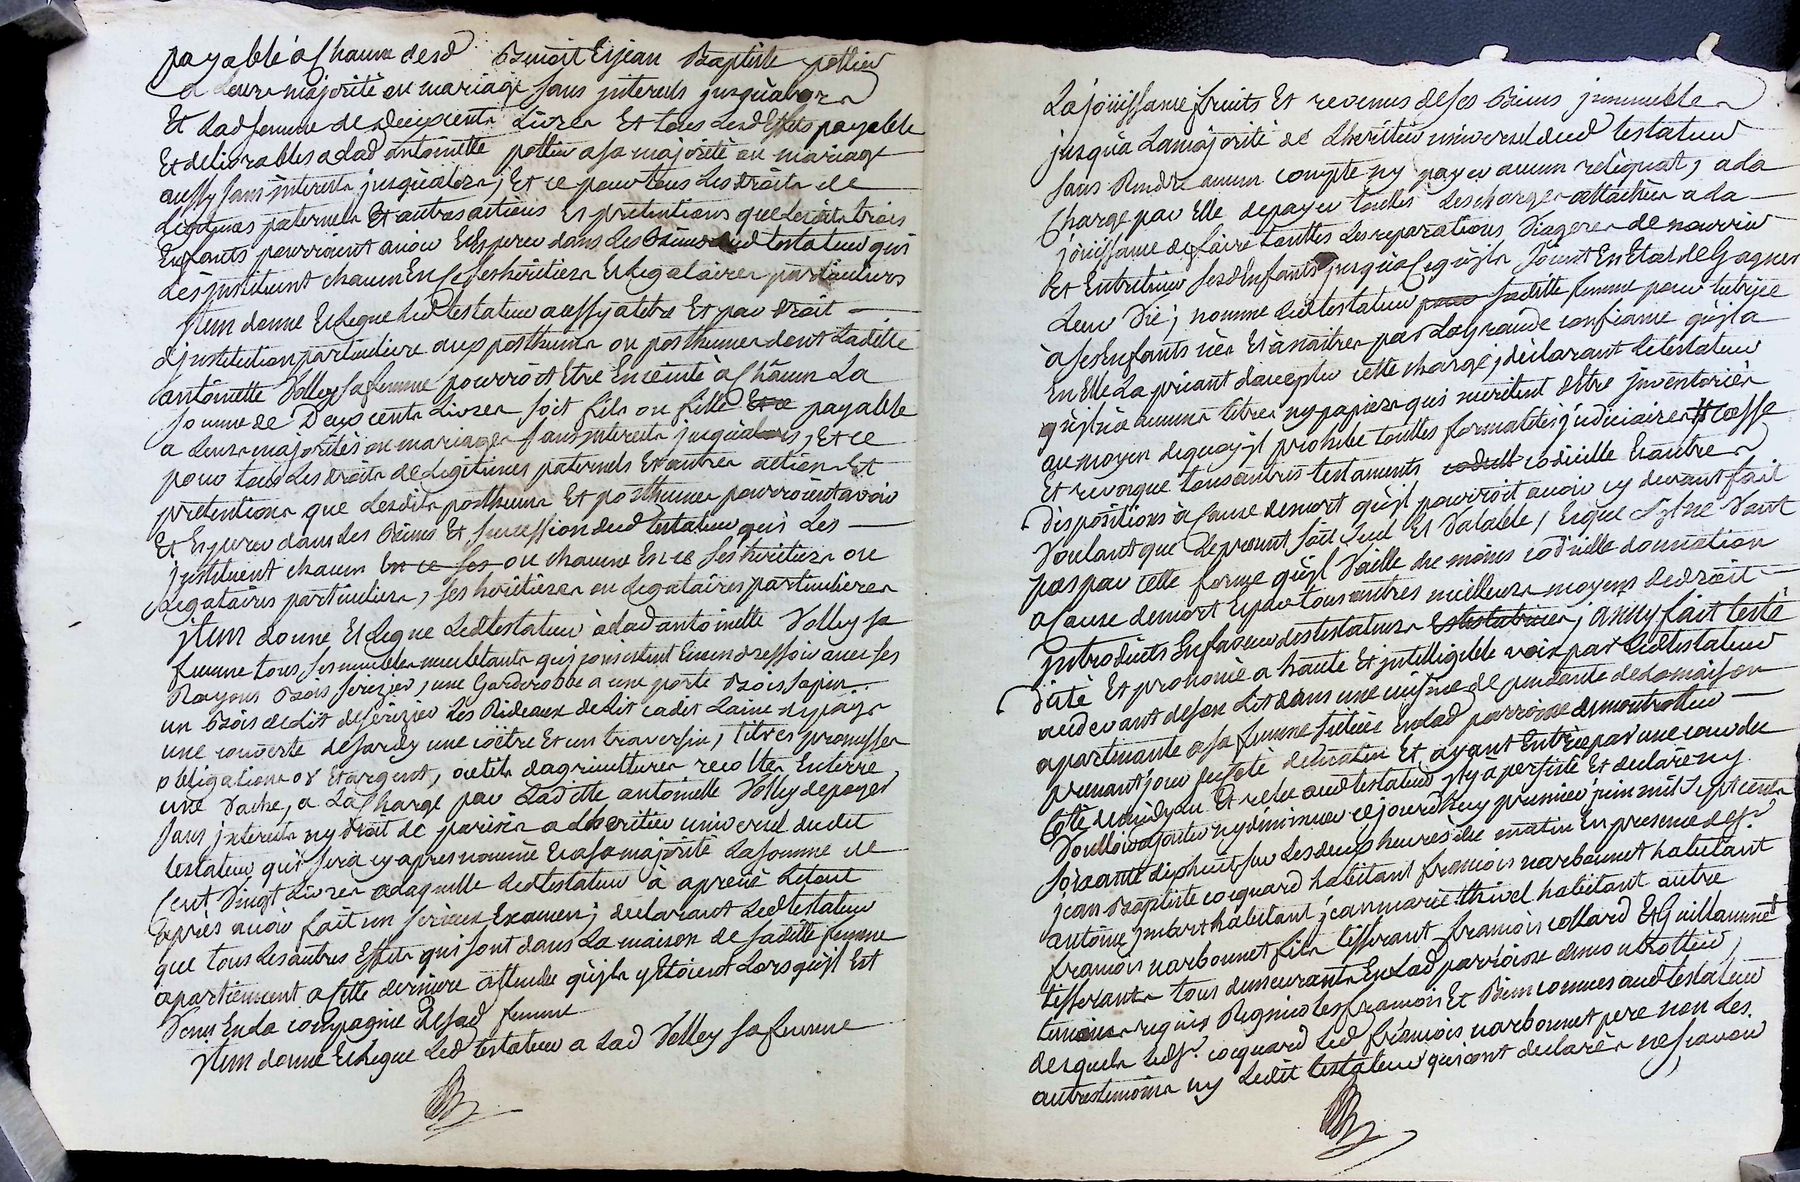 payable a Chacun desd Benoit Et jean Baptiste pottier
a Leurs majorité ou mariage sans interests jusqu'alors
Et Lad somme de Deux cents Livres Et tous Lesd Effets payable
Et delivrables a Lad antoinette pottier a sa majorité ou mariage
aussy sans interests jusqu'alors, Et ce pour tous Les droits de
Legitimes paternels Et autres actions Et pretentions que Lesdits trois
Enfants pourroient avoir Et Esperer dans Les Biens dud testateur qui
Les instituent chacun En ce ses heritiers Et Legataires particuliers
jtem donne Et Legue Led testateur aussy a titre Et par droit
d'jnstitution particuliere aux posthumes ou posthumes dont Ladite
antoinette Volley sa femme pourroit Etre Enceinte a Chacun La
somme de Deux cents Livres soit fils ou fille Et ce payable
a Leurs majorités ou mariages sans interests jusqu'alors, Et ce
pour tous Les droits de Legitimes paternels Et autres actions Et
pretentions que Lesdits posthumes Et posthumes pourroient avoir
Et Esperer dans Les Biens Et succession dud testateur qui Les
jnstituent chacun En ce ses ou chacune En ce ses heritiers ou
Legataires particuliers, ses heritieres ou Legataires particulieres
jtem donne Et Legue Led testateur à Lad antoinette Volley sa
femme tous ses meubles meublants qui consistent En un dressoir avec ses
Rayons Bois serizier, une Garderobbe a une porte Bois sapin
un Bois de Lit de serizier Les Rideaux de Lit cadet Laine du pays
une couverte de sardy une coëtre Et un traversin, titres promesses
obligations or Et argent, outils d'agricultures recoltes En terre
une Vache, a La Charge par Ladite antoinette Volley de payer
sans interests ny droit de parisis a Lheritier universel dudit
testateur qui sera cy apres nommé Et a sa majorité La somme de
Cent Vingt Livres a Laquelle Led testateur à aprecié Le tout
après avoir fait un serieux Examen; declarant Led testateur
que tous Les autres Effets qui sont dans La maison de sadite femme
apartiennent a cette derniere attendu qu'ils y Etoient Lors qu'jl Est
Venu En La compagnie De sad femme
jtem donne Et Legue Led testateur a Lad Volley sa femme
La joüissance fruits Et revenus de ses Biens jmmeubles
jusqu'à La majorité de Lheritier universel dud testateur
sans Rendre aucun compte ny payer aucun reliquat, a La
Charge par Elle de payer toutes Les charges attachées a La
joüissance de faire toutes Les reparations Viageres de nourrir
Et Entretenir sesd Enfants jusqu'a ce qu'jls soient En Etat de Gagner
Leur Vie; nomme Led testateur pour sadite femme pour tutrice
à ses Enfants nés Et à naitre par La Grande confiance qu'jl a
En Elle La priant d'accepter cette charge, declarant Le testateur
qu'jl n'a aucuns titres ny papiers qui meritent d'être jnventoriés
au moyen de quoy jl prohibe toutes formalités judiciaires # casse
Et revoque tous autres testaments codicile Et autres
dispositions à Cause de mort qu'jl pourroit avoir cy devant fait
Voulant que Le present soit seul Et Valable, Et que s'jl ne Vaut
pas par cette forme qu'jl Vaille du moins codicille donnation
a Cause de mort Et par tous autres meilleurs moyens de droit
jntroduits En faveur des testateurs Et testatrices, ainsy fait testé
dicté Et prononcé a haute Et jntelligible voix par Led testateur
au devant de son Lit dans une cuisine dependante de La maison
apartenante a sa femme scituée En Lad parroisse de montrottier
prenant jour du coté de matin Et ayant Entrée par une cour du
Coté de midy Lu Et relu aud testateur ny a persisté Et declaré ny
Vouloir ajouter ny diminuer cejourd'huy premier juin mil sept cents
soixante dix huit sur Les deux heures de matin En presence de sr
jean Baptiste cocquard habitant francois narbonnet habitant
antoine jmbart habitant jean marie thivel habitant autre
francois narbonnet fils tisserant francois collard Et Guillaume
tisserants tous demeurants En Lad parroisse de montrottier,
temoins requis Resnicoles francois Et Bien connus aud testateur
desquels Led sr cocquard Led francois narbonnet pere non Les
autres temoins ny Ledit testateur qui ont declarés ne scavoir